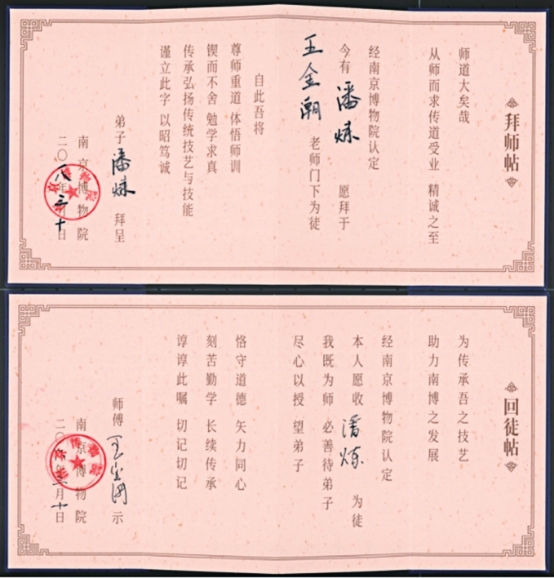 拜师帖
师道大矣哉
从师而求传道受业 精诚之至
经南京博物院认定
今有 潘炼 愿拜于
王金潮 老师门下为徒
自此吾将
尊师重道 体悟师训
锲而不舍 勉学求真
传承弘扬传统技艺与技能
谨立此字 以昭笃诚
弟子 潘炼 拜呈
南京博物院
二〇 八年三 十日
回徒帖
为传承吾之技艺
助力南博之发展
经南京博物院认定
本人愿收 潘炼 为徒
我既为师 必善待弟子
尽心以授 望弟子
恪守道德 矢力同心
刻苦勤学 长续传承
谆谆此嘱 切记切记
师傅 王金潮 示
南京博物院
二〇 年 月十日